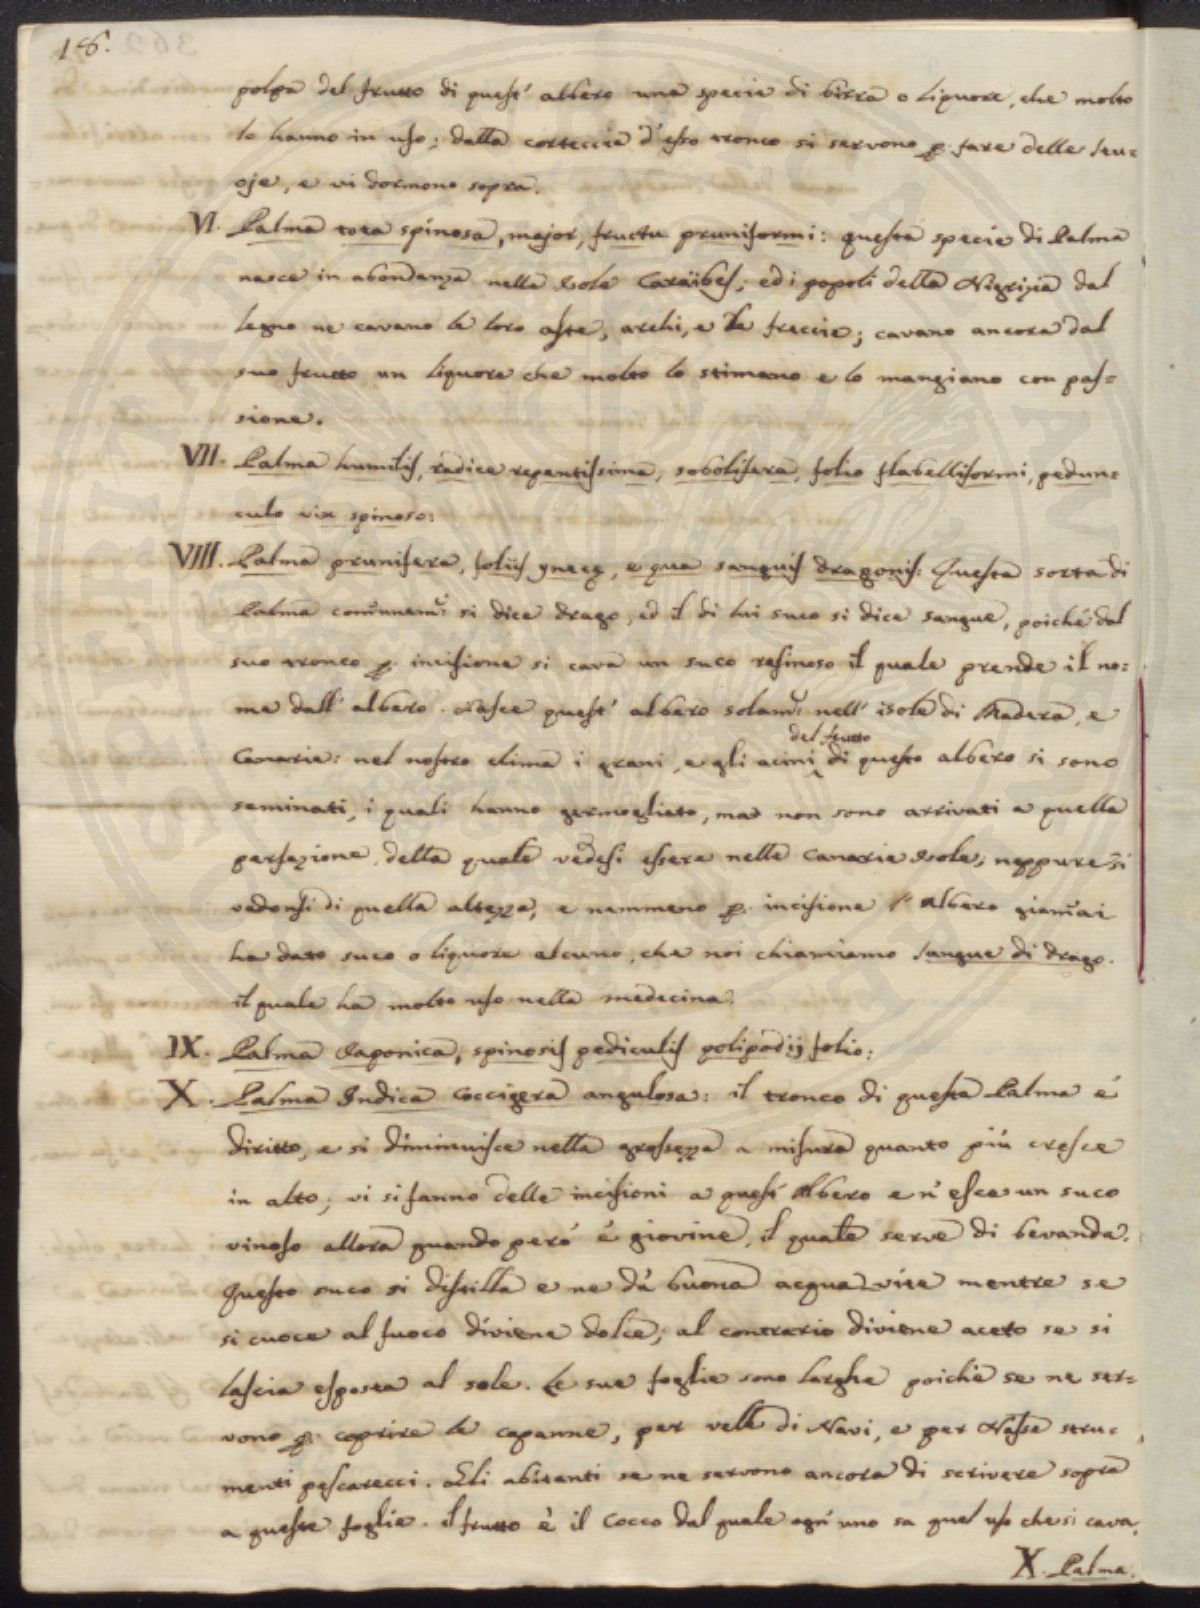 186.
polpa del frutto di quest' albero una specie di birra o liquore, che molto
lo hanno in uso; dalla corteccia d'esso tronco si servono p. fare delle stu=
oje, e vi dormono sopra.
VI. Palma tota spinosa, major, fructu pruniformi: questa specie di Palma
nasce in abondanza nelle Isole Caraibes; ed i popoli della Nigrizia dal
legno ne cavano le loro aste, archi, e le freccie; cavano ancora dal
suo frutto un liquore che molto lo stimano e lo mangiano con pas=
sione.
VII. Palma humilis, radice repentissima, sobolifera, folio flabelliformi, pedun=
culo vix spinoso:
VIII. Palma prunifera, foliis yuccę, e qua sanguis draconis: Questa sorta di
Palma comunnem: si dice drago, ed il di lui suco si dice sangue, poiché dal
suo tronco p. incisione si cava un suco resinoso il quale prende il no=
me dall' albero. Nasce quest' albero solam: nell' isole di Madera, e
del frutto
Canarie: nel nostro clima i grani, e gli acini di questo albero si sono
seminati, i quali hanno germogliato, ma non sono arrivati a quella
perfezione della quale vedesi essere nelle Canarie Isole; neppure si
vedonsi di quella altezza, e nemmeno p. incisione l' Albero giam̃ai
ha dato suco o liquore alcuno, che noi chiamiamo sangue di drago.
il quale ha molto uso nella medecina.
IX. Palma Japonica, spinosis pediculis polipodij folio:
X. Palma Indica coccigera angulosa: il tronco di questa Palma é
diritto, e si diminuisce nella grossezza a misura quanto più cresce
in alto; vi si fanno delle incisioni a quest' Albero e n' esce un suco
vinoso allora quando peró é giovine, il quale serve di bevanda.
Questo suco si distilla e ne dà buona acqua vite mentre se
si cuoce al fuoco diviene dolce; al contrario diviene aceto se si
lascia esposta al sole. Le sue foglie sono larghe poiché se ne ser=
vono p. coprire le capanne, per velle di Navi, e per Nasse stru=
menti pescarecci. Gli abitanti se ne servono ancora di scrivere sopra
a queste foglie. il frutto è il Cocco dal quale ogn' uno sa quel uso che si cava.
X. Palma.